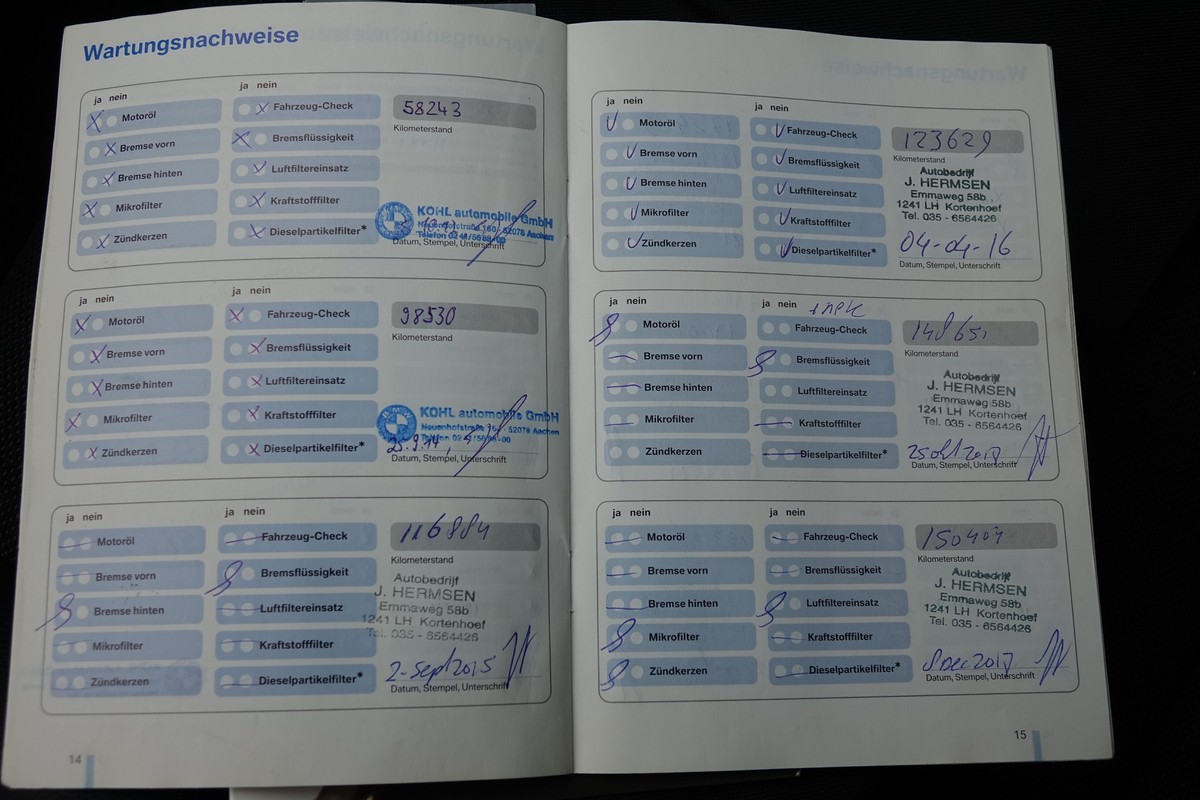 Wartungsnachweise
ja nein
ja nein
Motoröl
Fahrzeug-Check
58243
Bremse vorn
Bremsflüssigkeit
Kilometerstand
Bremse hinten
Luftfiltereinsatz
Mikrofilter
Kraftstofffilter
Zündkerzen
Dieselpartikelfilter*
KOHL automobile GmbH
Neuenhofstraße 160 · 52078 Aachen
Datum, Stempel, Unterschrift
ja nein
ja nein
Motoröl
Fahrzeug-Check
98530
Bremse vorn
Bremsflüssigkeit
Kilometerstand
Bremse hinten
Luftfiltereinsatz
Mikrofilter
Kraftstofffilter
Zündkerzen
Dieselpartikelfilter*
KOHL automobile GmbH
Neuenhofstraße 160 · 52078 Aachen
25.9.14
Datum, Stempel, Unterschrift
ja nein
ja nein
Motoröl
Fahrzeug-Check
116884
Bremse vorn
Bremsflüssigkeit
Kilometerstand
Bremse hinten
Luftfiltereinsatz
Mikrofilter
Kraftstofffilter
Zündkerzen
Dieselpartikelfilter*
Autobedrijf
J. HERMSEN
Emmaweg 58b
1241 LH Kortenhoef
Tel. 035 - 6564426
2-Sept 2015
Datum, Stempel, Unterschrift
14
ja nein
ja nein
Motoröl
Fahrzeug-Check
123629
Bremse vorn
Bremsflüssigkeit
Kilometerstand
Bremse hinten
Luftfiltereinsatz
Mikrofilter
Kraftstofffilter
Zündkerzen
Dieselpartikelfilter*
Autobedrijf
J. HERMSEN
Emmaweg 58b
1241 LH Kortenhoef
Tel. 035 - 6564426
04-04-16
Datum, Stempel, Unterschrift
ja nein
ja nein
Motoröl
Fahrzeug-Check
Bremse vorn
Bremsflüssigkeit
Kilometerstand
Bremse hinten
Luftfiltereinsatz
Mikrofilter
Kraftstofffilter
Zündkerzen
Dieselpartikelfilter*
Autobedrijf
J. HERMSEN
Emmaweg 58b
1241 LH Kortenhoef
Tel. 035 - 6564426
Datum, Stempel, Unterschrift
ja nein
ja nein
Motoröl
Fahrzeug-Check
Bremse vorn
Bremsflüssigkeit
Kilometerstand
Bremse hinten
Luftfiltereinsatz
Mikrofilter
Kraftstofffilter
Zündkerzen
Dieselpartikelfilter*
Autobedrijf
J. HERMSEN
Emmaweg 58b
1241 LH Kortenhoef
Tel. 035 - 6564426
8 dec 2017
Datum, Stempel, Unterschrift
15